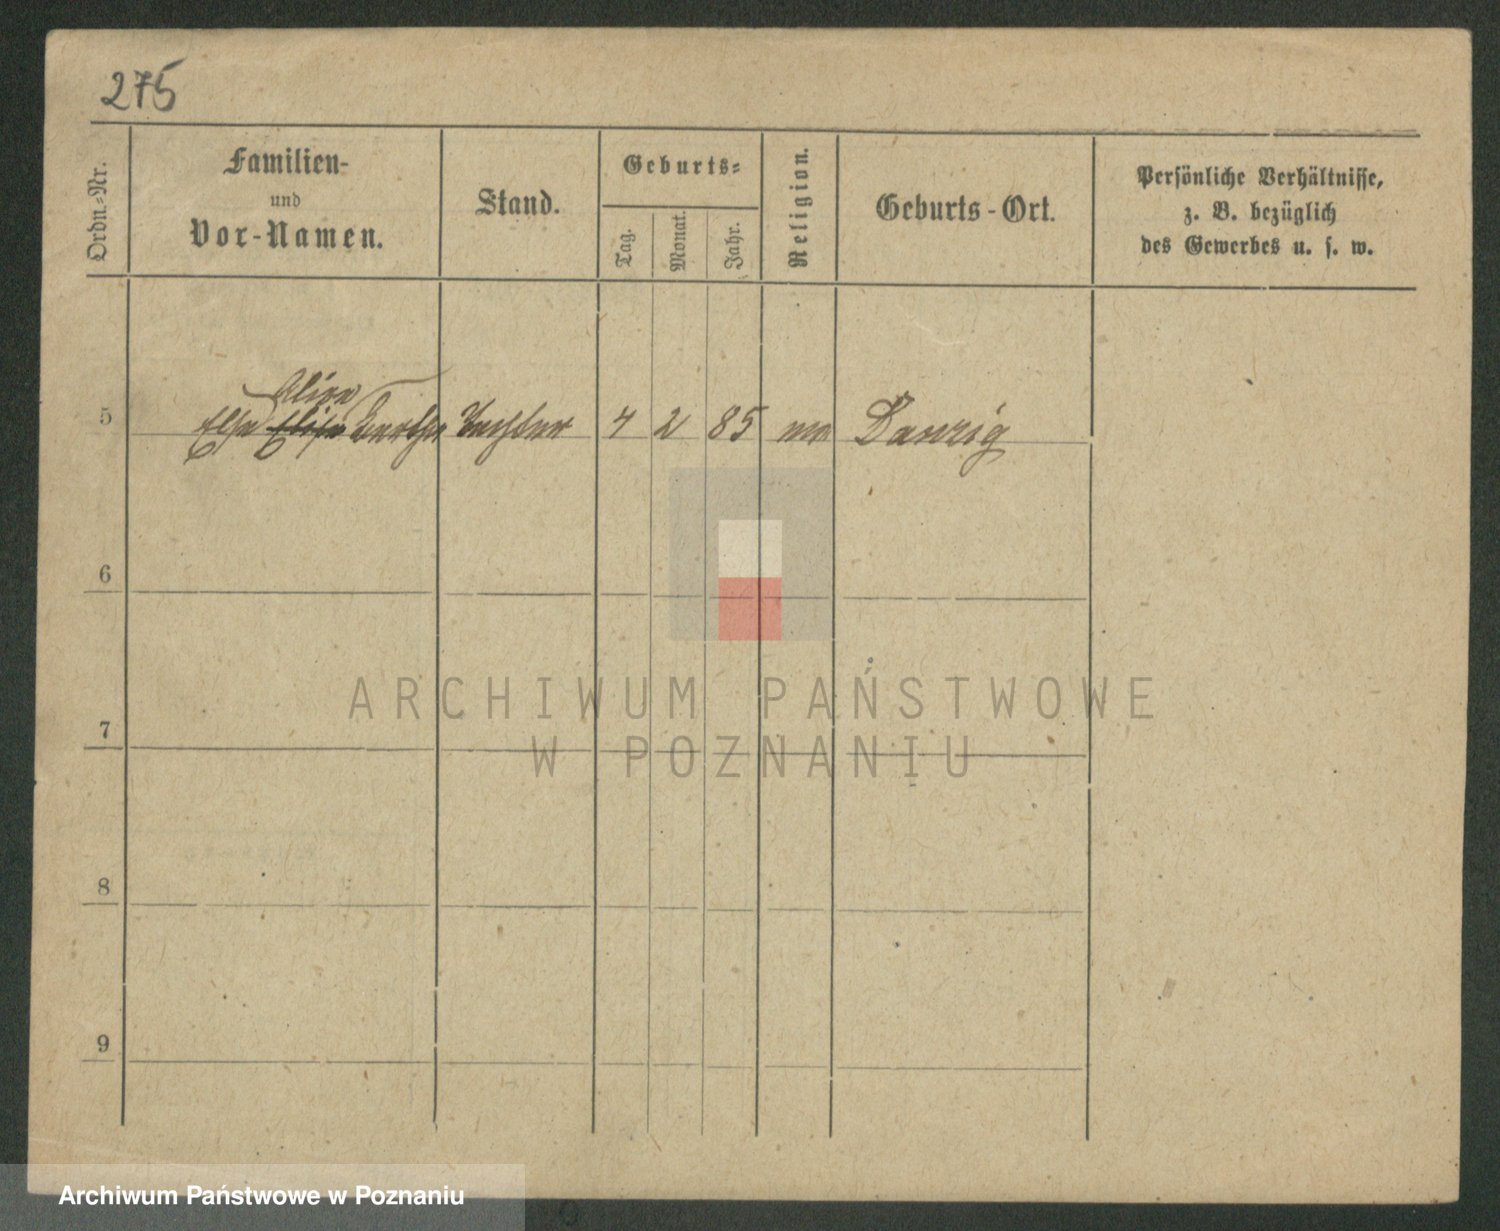 275
Ordn.-Nr.
Familien-
und
Vor-Namen.
Stand.
Geburts-
Tag.
Monat.
Jahr.
Religion.
Geburts-Ort.
Persönliche Verhältnisse,
z. B. bezüglich
des Gewerbes u. s. w.
Alice
5 Else Elise Berthe Tochter 4 2 85 Danzig
6
ARCHIWUM PAŃSTWOWE
7
W POZNANIU
8
9
Archiwum Państwowe w Poznaniu